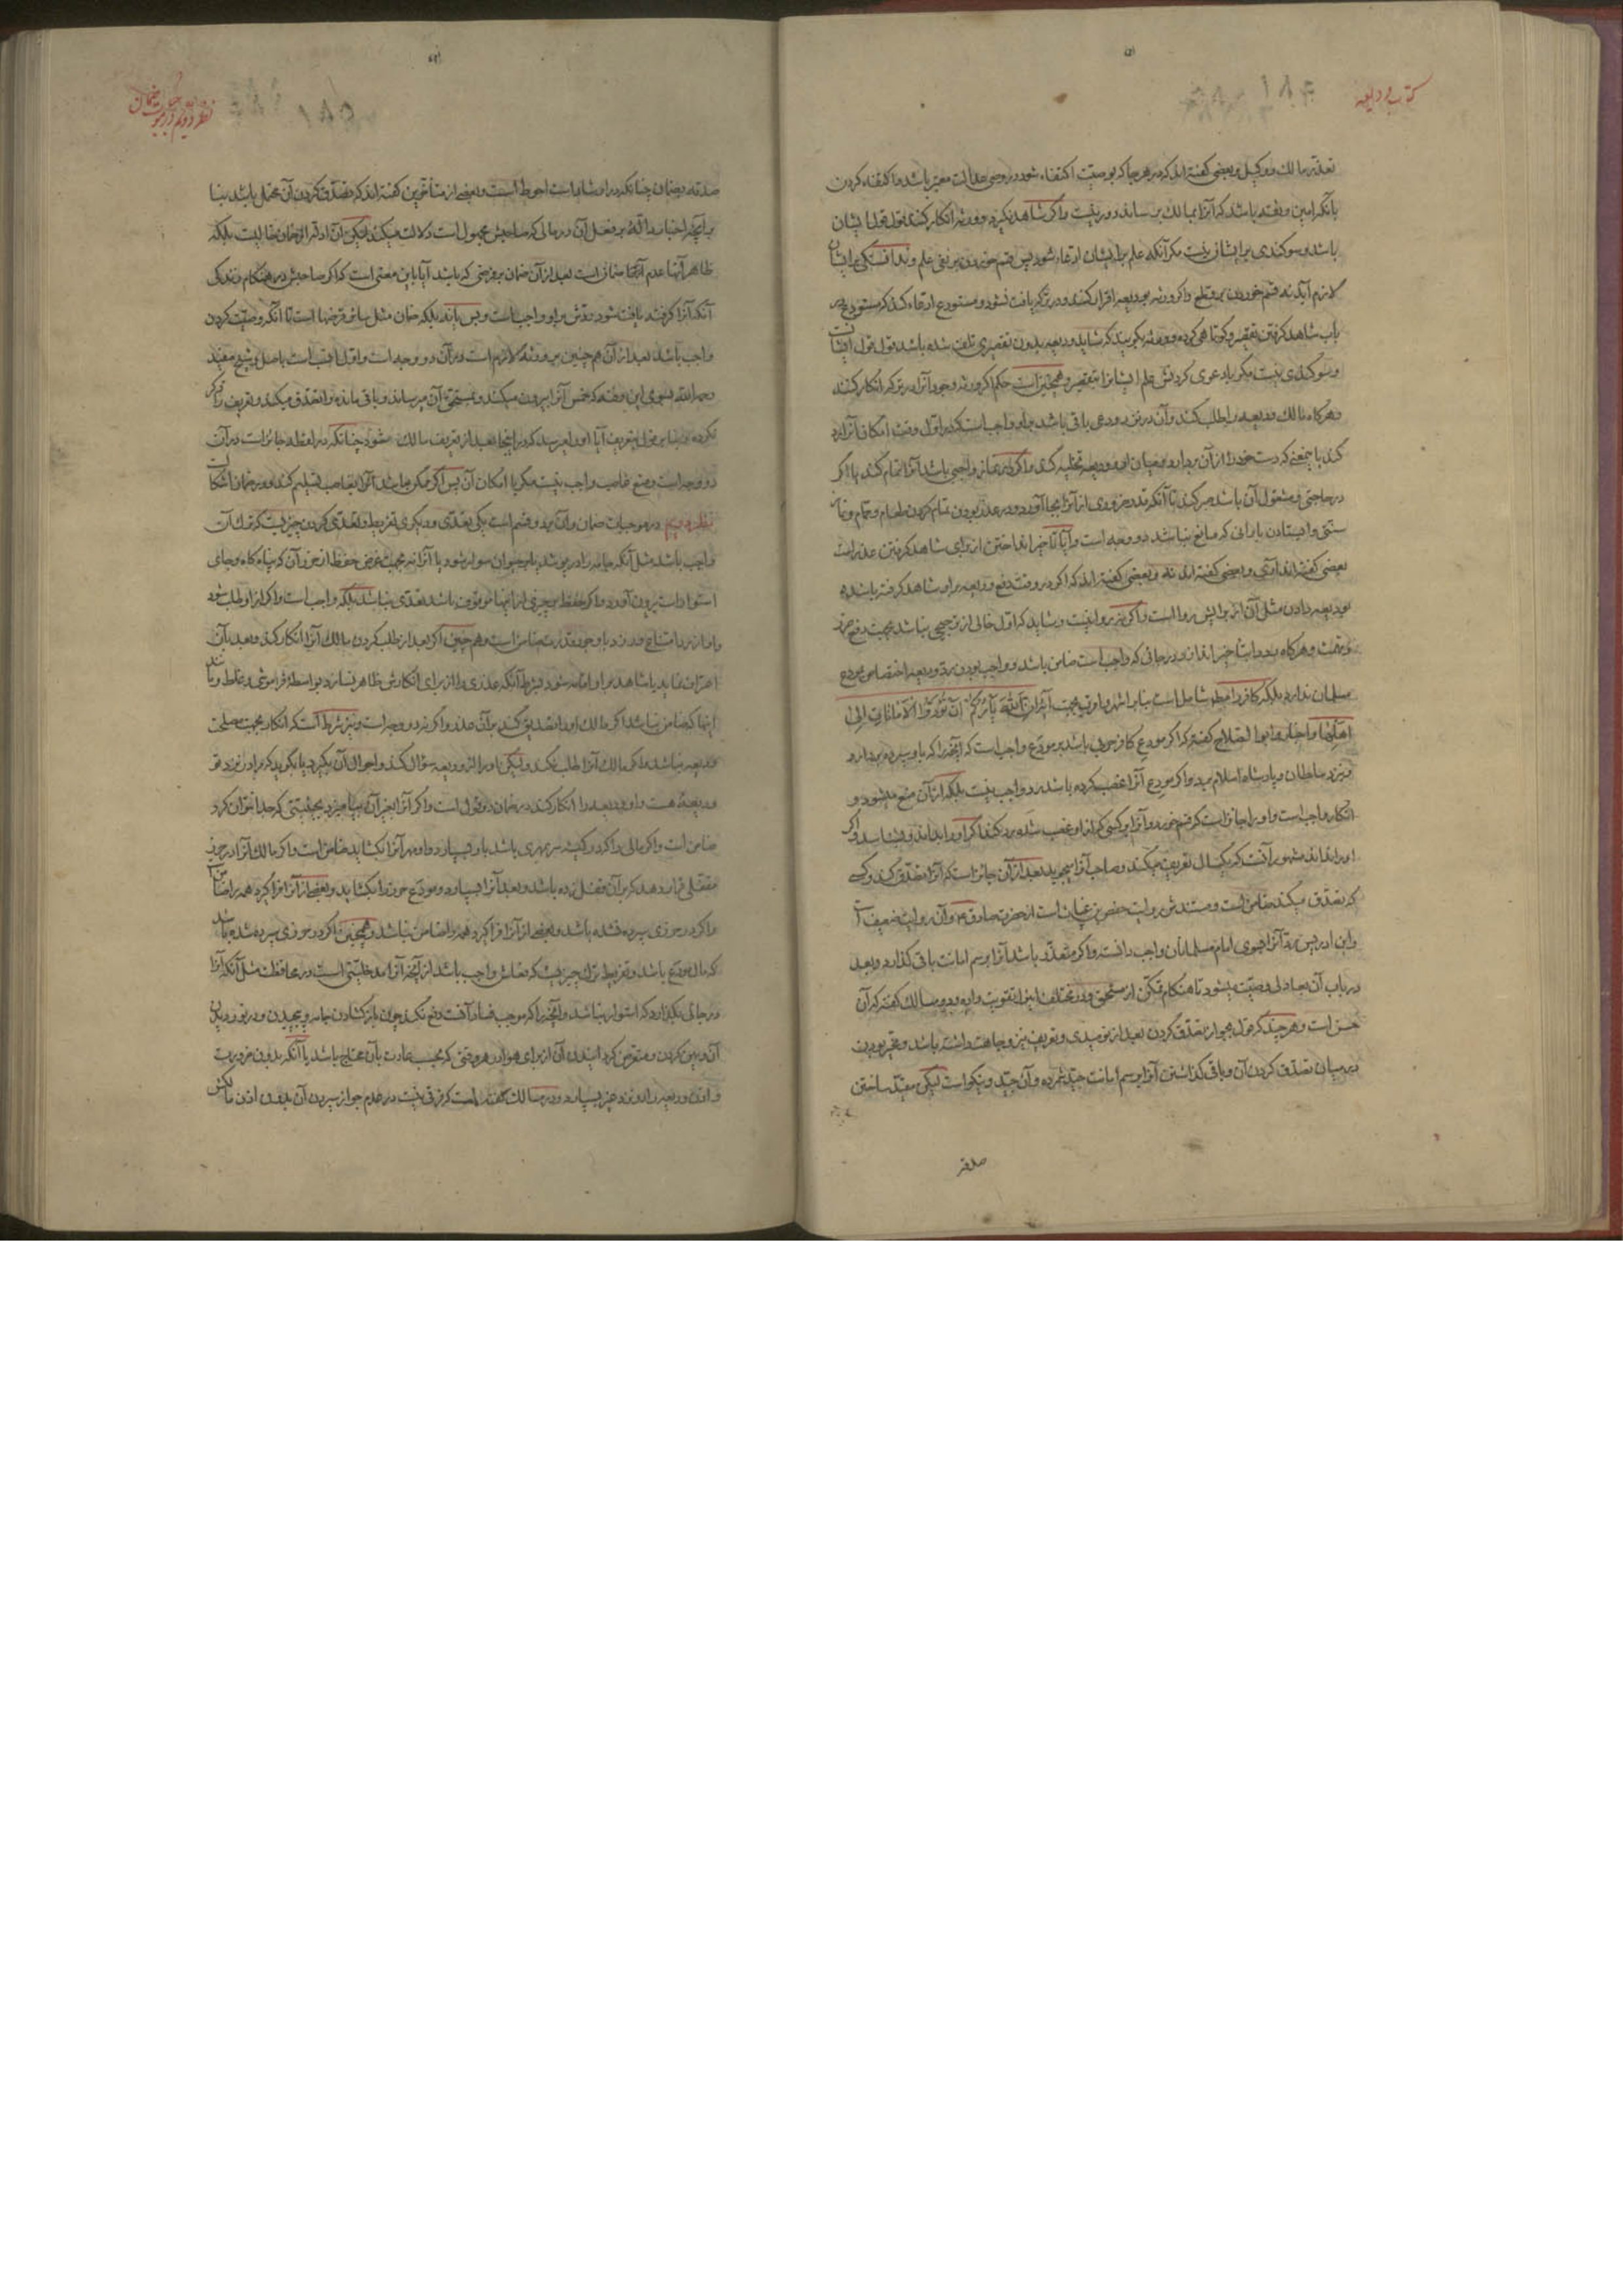 کتاب ودیعه
تعذّر مالك و وکیل و بعضی گفته‌اند که در هر جا که بوصیّت اکتفاء شود در وصی عدالت معتبر باشد و اکتفاء کردن
بانکه امین و ثقه باشد که آنرا بمالك برساند دور نیست و اگر شاهد نگیرد و ورثه انکار کنند قول قول ایشان
باشد و سوکندی بر ایشان نیست مکر آنکه علم بر ایشان ادّعاء شود پس قسم خوردن بر نفی علم
لازم آید نه قسم خوردن بر قطع و اگر ورثه بودیعه اقرار کنند و در ترکه یافت نشود و مستودع ادعاء کند که مستودع در
باب شاهد گرفتن تقصیر و کوتاهی کرده و ورثه بگویند که شاید ودیعه بدون تقصیری تلف شده باشد قول قول ایشان
و سوکندی نیست مکر با دعوی کردن علم ایشان را بتقصیر و همچنین است حکم اگر ورثه وجود آنرا در ترکه انکار کنند
و هرگاه مالك ودیعه را طلب کند و آن در نزد ودعی باقی باشد بر او واجب است که در اوّل وقت امکان آنرا رد
کند باینمعنی که دست خود را از آن بردارد و میان او و ودیعه تخلیه کند و اگر در نماز واجبی باشد آنرا تمام کند یا اگر
در حاجتی و مشغول آن باشد صبر کند تا آنکه قدر ضروری از آنرا بجا آورد و در عذر بودن تمام کردن طعام و حمام و نماز
سنّتی و ایستادن بارانی که مانع نباشد دو وجه است و آیا تأخیر انداختن از برای شاهد گرفتن عذر است
بعضی گفته‌اند آری و بعضی گفته‌اند نه و بعضی گفته‌اند که اگر در وقت دفع ودیعه بر او شاهد گرفته باشد
ودیعه دادن مثل آن از برایش روا است و اگر نه روا نیست و شاید که اول خالی از ترجیحی نباشد بجهت دفع ضرر
و تهمت و هرگاه رد ودایت را تأخیر اندازد در جائی که واجب است ضامن باشد و واجب بودن رد ودیعه اختصاص بمودع
مسلمان ندارد بلکه کافر را مط شامل است بنابر اشهر و اقوی بجهت آیه ان الله یأمرکم ان تؤدّوا الامانات الی
اهلها و اخبار و ابو الصلاح گفته که اگر مودع کافر حربی باشد بر مودع واجب است که آنچه را که باو سپرده بردارد
و بنزد سلطان و پادشاه اسلام ببرد و اگر مودع آنرا غصب کرده باشد رد واجب نیست بلکه از آن منع میشود و
انکار واجب است و او را جائز است که قسم خورد و آنرا بر کسی که از او غصب شده رد کند اگر او را بداند و بشناسد و اگر
او را نداند مشهور آنست که یکسال تعریف میکند و صاحب آنرا میجوید بعد از آن جائز است که آنرا تصدّق کند و کسی
که تصدّق میکند ضامن است و مستندش روایت حفص بن غیاث است از حضرت صادق ع و آن روایت ضعیف است
و ابن ادریس رد آنرا بسوی امام مسلمانان واجب دانسته و اگر متعذّر باشد آنرا برسم امانت باقی گذارد و بعد
در باب آن بعادلی وصیّت بشود تا هنگام تمکّن از مستحق و در مختلف اینرا تقویت داده و در مسالك گفته که آن
حسن است و هرچند که قول بجواز تصدّق کردن بعد از نومیدی و تعریف نیز وجاهت داشته باشد و مخیر بودن
در میان تصدّق کردن آن و باقی گذاشتن آنرا برسم امانت جیّد شمرده و آن جیّد و نیکو است لیکن مقیّد ساختن
صدقه
نظر دویم در موجبات ضمان
صدقه بضمان چنانکه در ارشاد است احوط است و بعضی از متأخرین گفته‌اند که تصدّق کردن آن محتمل باشد بنا
بر آنچه اخبار دالّه بر فعل آن در مالی که صاحبش مجهول است دلالت میکند لیکن آن ادلّه از ضمان خالیست بلکه
ظاهر آنها عدم آنکه ضمانی است بعد از آن ضمان بر فرضی که باشد آیا باین معنی است که اگر صاحبش در هنگام زندگی
آنکه آنرا گرفته یافت شود عوضش بر او واجب است و بس یا نه بلکه ضمان مثل سائر قرضها است تا آنکه وصیّت کردن
واجب باشد بعد از آن همچنین بر ورثه لازم است و در آن دو وجه است و اوّل اقرب است باصل و شیخ مفید
رحمه الله بسوی این رفته که خمس آنرا بیرون میکند و بمستحقّ آن میرساند و باقی مانده را تصدّق میکند و تعریف را ذکر
نکرده و بنابر قول بتعریف آیا او را میرسد که در اینجا بعد از تعریف مالك شود چنانکه در لقطه جائز است در آن
دو وجه است و منع غاصب واجب نیست مکر با امکان آن پس اگر ممکن نباشد آنرا بغاصب تسلیم کند و در ضمان اشکالست
نظر دویم در موجبات ضمان و آن بر دو قسم است یکی تعدّی و دیگری تفریط و تعدّی کردن چیزیست که ترك آن
واجب باشد مثل آنکه جامه را در بپوشد یا بر حیوان سوار شود یا آنرا نه بجهت غرض حفظ از حرز آن که پناه گاه و جای
استوار است بیرون آورد و اگر حفظ بر چیزی از اینها موقوف باشد تعدّی نباشد بلکه واجب است و اگر از او طلب شود
و او از رد امتناع ورزد با وجود قدرت ضامن است و همچنین اگر بعد از طلب کردن مالك آنرا انکار کند و بعد بآن
اعتراف نماید یا شاهد بر او اقامه شود بشرط آنکه عذری را از برای انکارش ظاهر نسازد بواسطه فراموشی و غلط و مانند
اینها که ضامن نباشد اگر مالك او را تصدیق کند بر آن عذر و اگر نه دو وجه است و نیز شرط است که انکار بجهت مصلحت
ودیعه نباشد و اگر مالك آنرا طلب نکند و لیکن او را از ودیعه سؤال کند و احوال آن بگیرد یا بگوید که مرا در نزد تو
ودیعهٔ هست و او ودیعه را انکار کند در ضمان دو قول است و اگر آنرا بغیر آن بیامیزد بحیثیّتی که جدا نتوان کرد
ضامن است و اگر مالی را که در کیسه سر مهری باشد باو سپارد و او مهر آنرا بکشاید ضامن است و اگر مالك آنرا در حرز
مقفّلی قرار دهد که بر آن قفل زده باشد و بعد آنرا سپارد و مودع حرز را بکشاید و بعضی از آنرا فرا گیرد همه را ضامن
و اگر در حرزی سپرده نشده باشد و بعضی از آنرا فرا گیرد همه را ضامن نباشد و همچنین اگر در حرزی سپرده شده باشد
که مال مودع باشد و تفریط ترك چیزیست که فعلش واجب باشد از آنچه آنرا مدخلیّتی است در محافظت مثل آنکه آنرا
در جائی بگذارد که استوار نباشد و آنچه را که موجب فساد آفت دفع نکند چون باز کشادن جامه و پیچیدن و در نوردیدن
آن و پهن کردن و متعرّض کردانیدن آن از برای هوا در هر وقتی که بحسب عادت بآن محتاج باشد یا آنکه بدون ضرورت
و اذن ودیعه را در نزد غیر بسپارد و در مسالك گفته است که فرقی نیست در عدم جواز سپردن آن بدون اذن مالکش